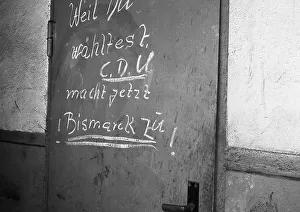 Weil Du
wähltest
C.D.U
macht jetzt
! Bismarck zu !